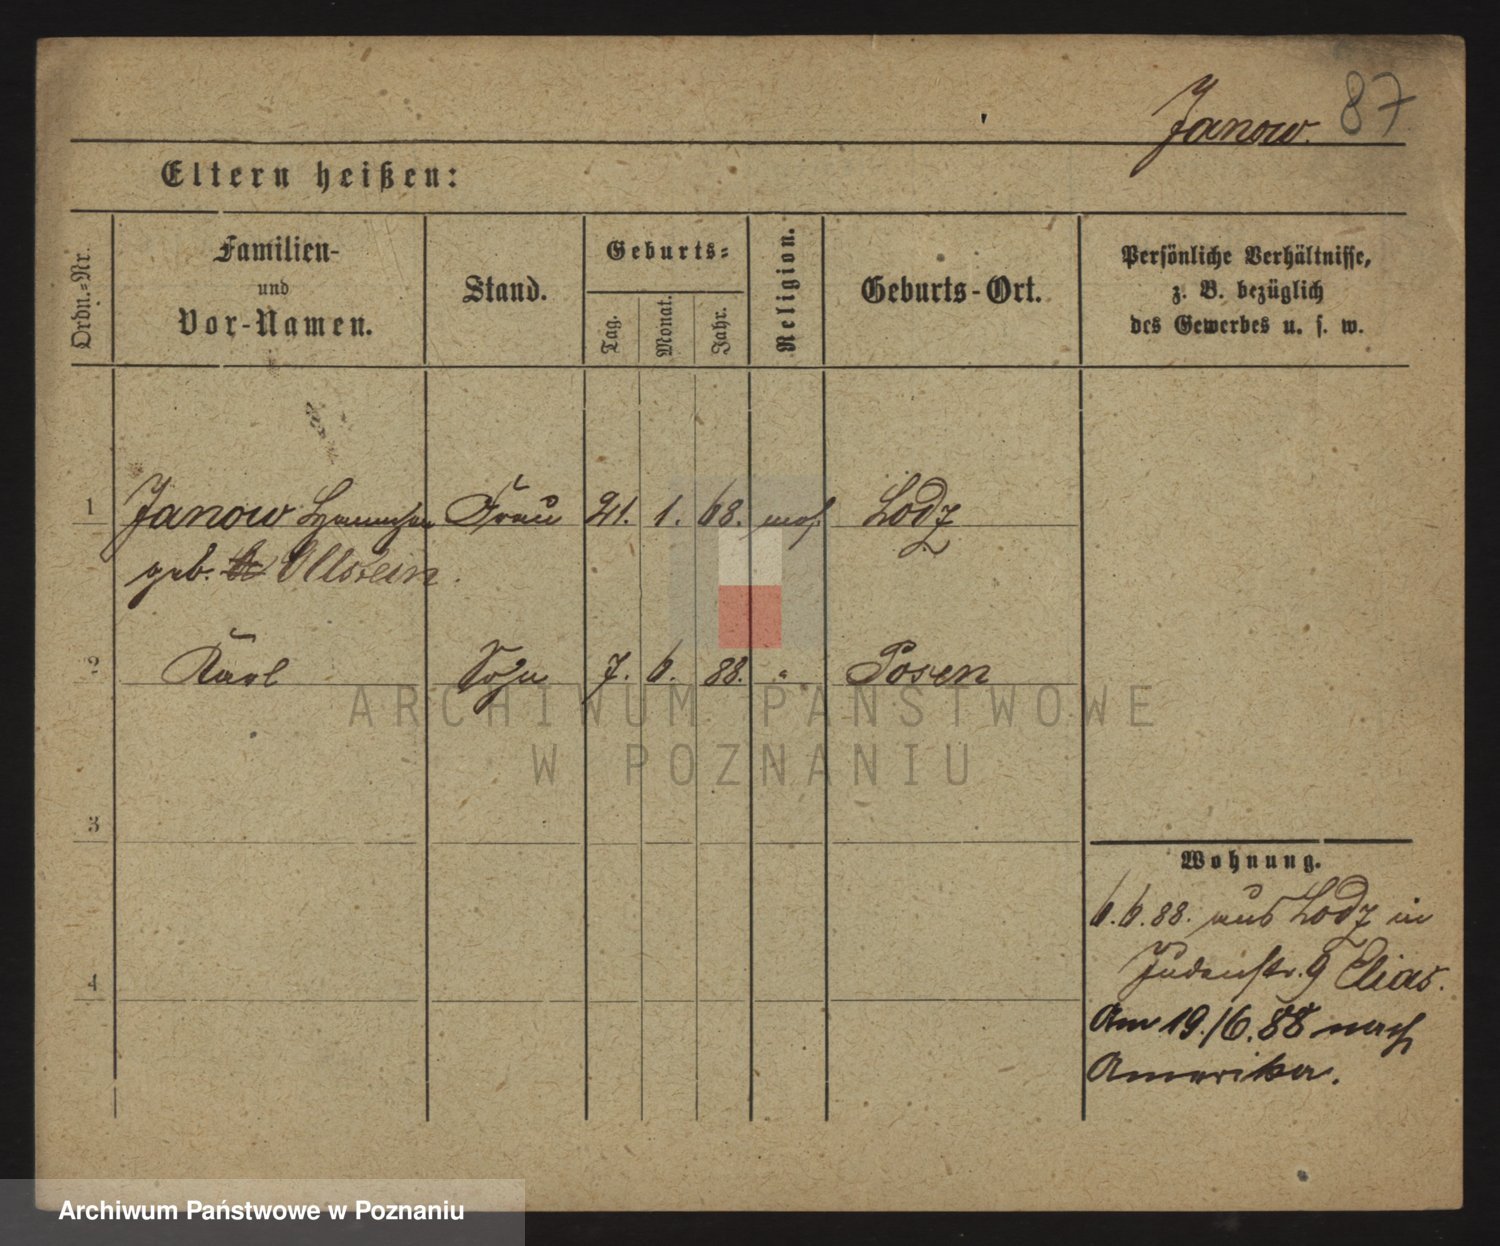 Janow. 87
Eltern heißen:
Ordn.-Nr.
Familien-
und
Vor-Namen.
Stand.
Geburts-
Tag.
Monat.
Jahr.
Religion.
Geburts-Ort.
Persönliche Verhältnisse,
z. B. bezüglich
des Gewerbes u. s. w.
1 Janow Hannchen Frau 21. 1. 68. mos. Lodz
geb. Ullstein.
2 Karl Sohn 7. 6. 88. " Posen
ARCHIWUM PAŃSTWOWE
W POZNANIU
3
Wohnung.
6.6.88. aus Lodz in
Judenstr. 9 Elias.
4
Am 19./6.88 nach
Amerika.
Archiwum Państwowe w Poznaniu